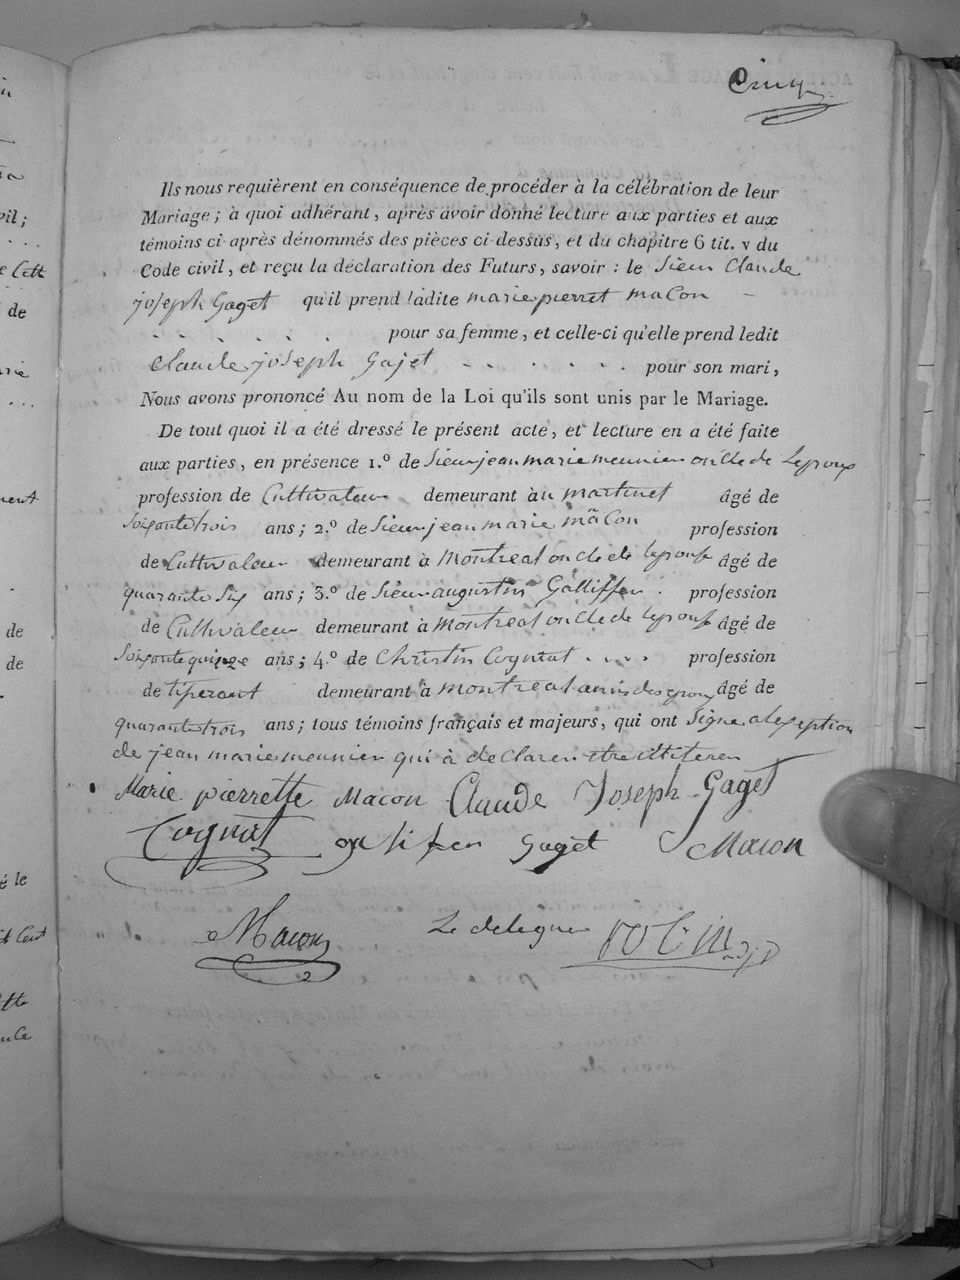 Cinq
Ils nous requièrent en conséquence de procéder à la célébration de leur
Mariage ; à quoi adhérant, après avoir donné lecture aux parties et aux
témoins ci-après dénommés des pièces ci-dessus, et du chapitre 6 tit. v du
Code civil, et reçu la déclaration des Futurs, savoir : le Sieur Claude
joseph Gaget qu'il prend ladite marie pierret macon
. . . . . . pour sa femme, et celle-ci qu'elle prend ledit
Claude joseph Gajet . . . . . . pour son mari,
Nous avons prononcé Au nom de la Loi qu'ils sont unis par le Mariage.
De tout quoi il a été dressé le présent acte, et lecture en a été faite
aux parties, en présence 1.º de Sieur jean marie meunier oncle de Lepoux
profession de Cultivateur demeurant àu martinet âgé de
Soixante trois ans ; 2.º de Sieur jean marie mâcon profession
de Cultivateur demeurant à Montreal oncle de lepouse âgé de
quarante Six ans ; 3.º de Sieur augustin Galliffer profession
de Cultivateur demeurant à Montreal oncle de lepouse âgé de
Soixante quinze ans ; 4.º de Christin Cogniat . . . . profession
de tiserant demeurant à Montreal amis des epoux âgé de
quarante trois ans ; tous témoins français et majeurs, qui ont Signe a lexseption
de jean marie meunier qui à de Clarer
Marie pierrette Macon Claude Joseph Gaget
Cognat galifer Gaget Macon
Macon
Le delegue